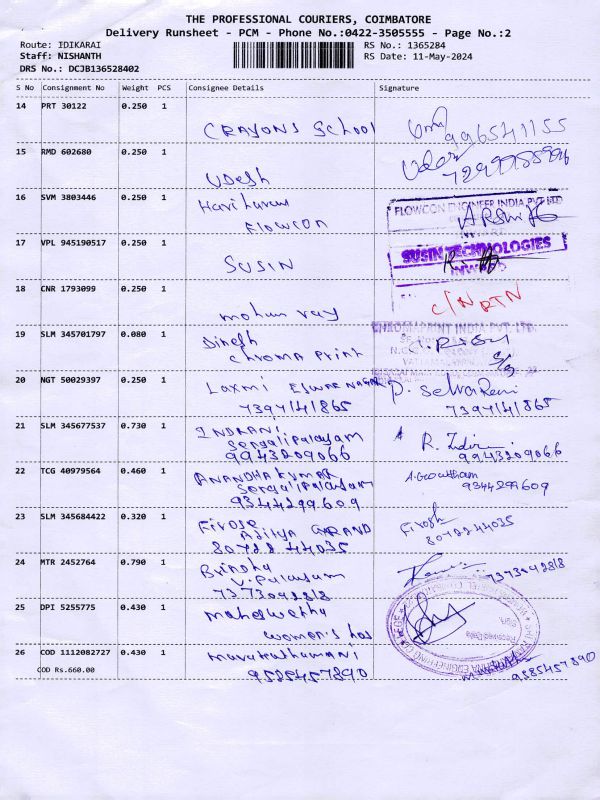 THE PROFESSIONAL COURIERS, COIMBATORE
Delivery Runsheet - PCM - Phone No.:0422-3505555 - Page No.:2
Route: IDIKARAI
Staff: NISHANTH
DRS No.: DCJB136528402
RS No.: 1365284
RS Date: 11-May-2024
S No Consignment No Weight PCS Consignee Details Signature
14 PRT 30122 0.250 1
CRAYONS School
996541155
15 RMD 602680 0.250 1
Udesh
16 SVM 3803446 0.250 1
Flowcon
FLOWCON ENGINEER INDIA PVT LTD
17 VPL 945190517 0.250 1
SUSIN
SUSIN TECHNOLOGIES
INWARD
18 CNR 1793099 0.250 1
mohun ray
C/N RTN
19 SLM 345701797 0.080 1
Dinesh
Chroma Print
CHROMA PRINT INDIA PVT. LTD.
20 NGT 50029397 0.250 1
Laxmi ESWAR NAGAR
7397141865
P. Selva Rani
7397141865
21 SLM 345677537 0.730 1
INDRANI
Sengalipalayam
9943209066
R. Indirani
9943209066
22 TCG 40979564 0.460 1
ANANDHAKUMAR
Sengalipalayam
9344299609
A. Gowtham
9344299609
23 SLM 345684422 0.320 1
Firose
Aditya GRAND
80728 44035
Firosh
80728 44035
24 MTR 2452764 0.790 1
Brindha
V. Palayam
7373042818
7373042818
25 DPI 5255775 0.430 1
women's hos
26 COD 1112082727 0.430 1
COD Rs.660.00
9585457890
9585457890